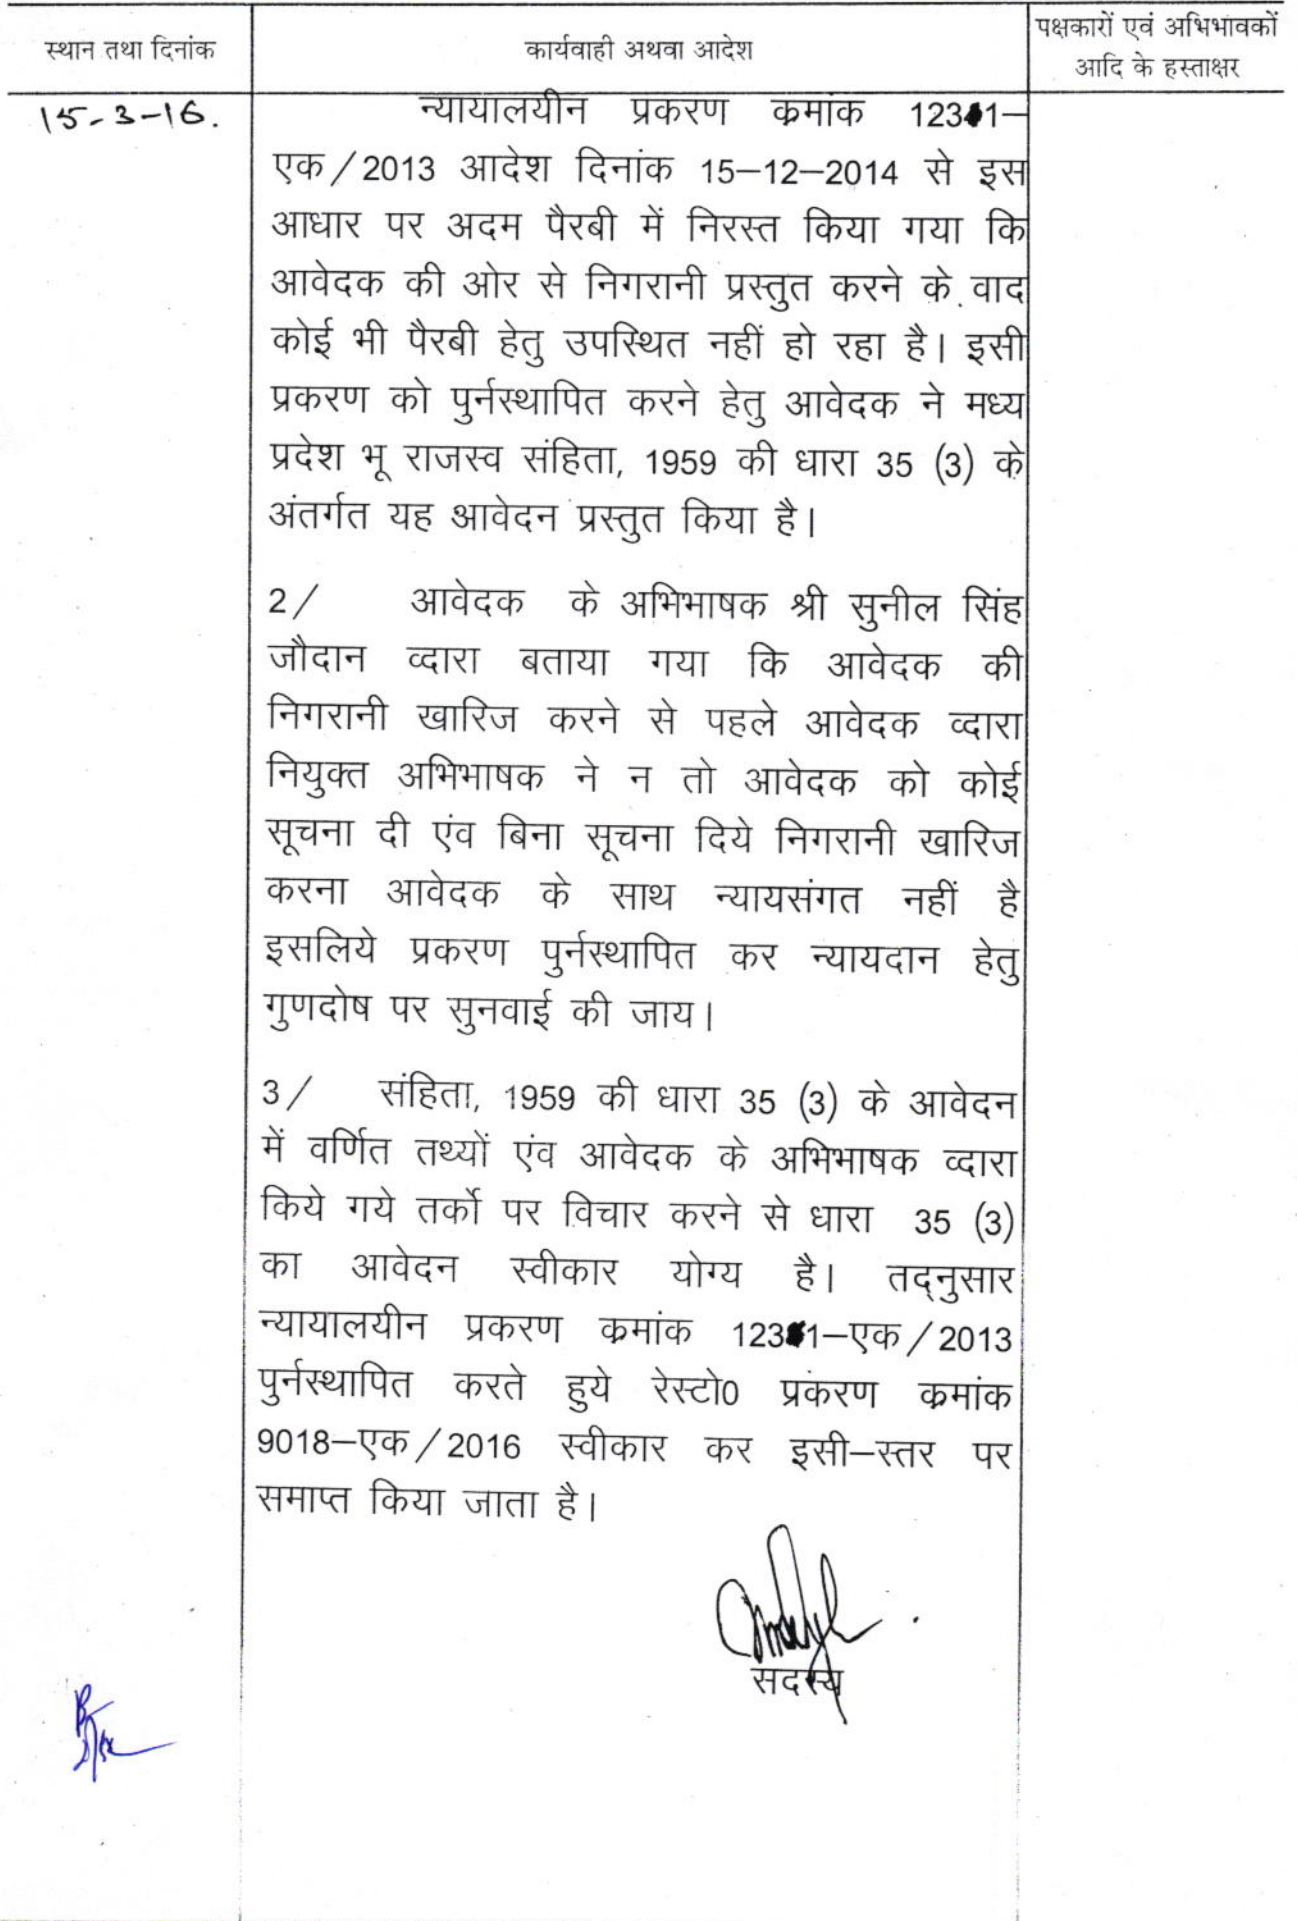 स्थान तथा दिनांक
कार्यवाही अथवा आदेश
पक्षकारों एवं अभिभावकों
आदि के हस्ताक्षर
15-3-16.
न्यायालयीन प्रकरण क्रमांक 1231–
एक/2013 आदेश दिनांक 15–12–2014 से इस
आधार पर अदम पैरबी में निरस्त किया गया कि
आवेदक की ओर से निगरानी प्रस्तुत करने के वाद
कोई भी पैरबी हेतु उपस्थित नहीं हो रहा है। इसी
प्रकरण को पुर्नस्थापित करने हेतु आवेदक ने मध्य
प्रदेश भू राजस्व संहिता, 1959 की धारा 35 (3) के
अंतर्गत यह आवेदन प्रस्तुत किया है।
2/ आवेदक के अभिभाषक श्री सुनील सिंह
जौदान व्दारा बताया गया कि आवेदक की
निगरानी खारिज करने से पहले आवेदक व्दारा
नियुक्त अभिभाषक ने न तो आवेदक को कोई
सूचना दी एंव बिना सूचना दिये निगरानी खारिज
करना आवेदक के साथ न्यायसंगत नहीं है
इसलिये प्रकरण पुर्नस्थापित कर न्यायदान हेतु
गुणदोष पर सुनवाई की जाय।
3/ संहिता, 1959 की धारा 35 (3) के आवेदन
में वर्णित तथ्यों एंव आवेदक के अभिभाषक व्दारा
किये गये तर्को पर विचार करने से धारा 35 (3)
का आवेदन स्वीकार योग्य है। तद्नुसार
न्यायालयीन प्रकरण क्रमांक 1231–एक/2013
पुर्नस्थापित करते हुये रेस्टो0 प्रकरण क्रमांक
9018–एक/2016 स्वीकार कर इसी–स्तर पर
समाप्त किया जाता है।
सदस्य